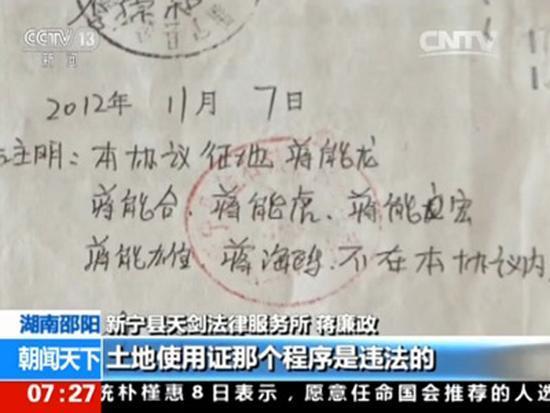 CCTV 13
新闻
CNTV
2012年 11月 7日
注明：本协议征地 蒋能龙
蒋能合、蒋能虎、蒋能宏
蒋能雄 蒋海鸥、不在本协议内
湖南邵阳
新宁县天剑法律服务所 蒋廉政
朝闻天下
土地使用证那个程序是违法的
07:27
统朴槿惠8日表示，愿意任命国会推荐的人选